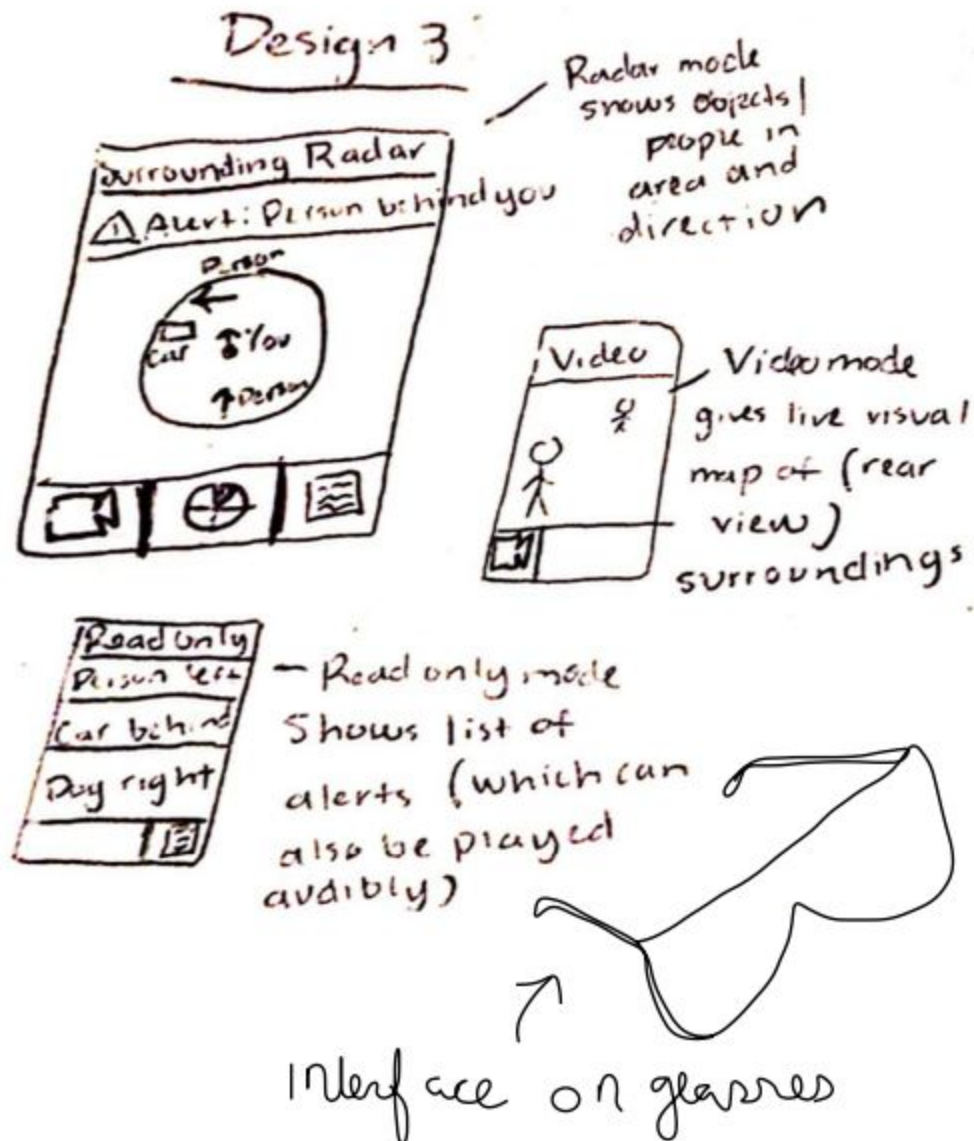 Design 3
Radar mode
shows objects/
people in
area and
direction
Surrounding Radar
Alert: Person behind you
Person
Car
You
Person
Video
Video mode
gives live visual
map of (rear
view)
surroundings
Read only
Person left
Car behind
Dog right
- Read only mode
Shows list of
alerts (which can
also be played
audibly)
Interface on glasses